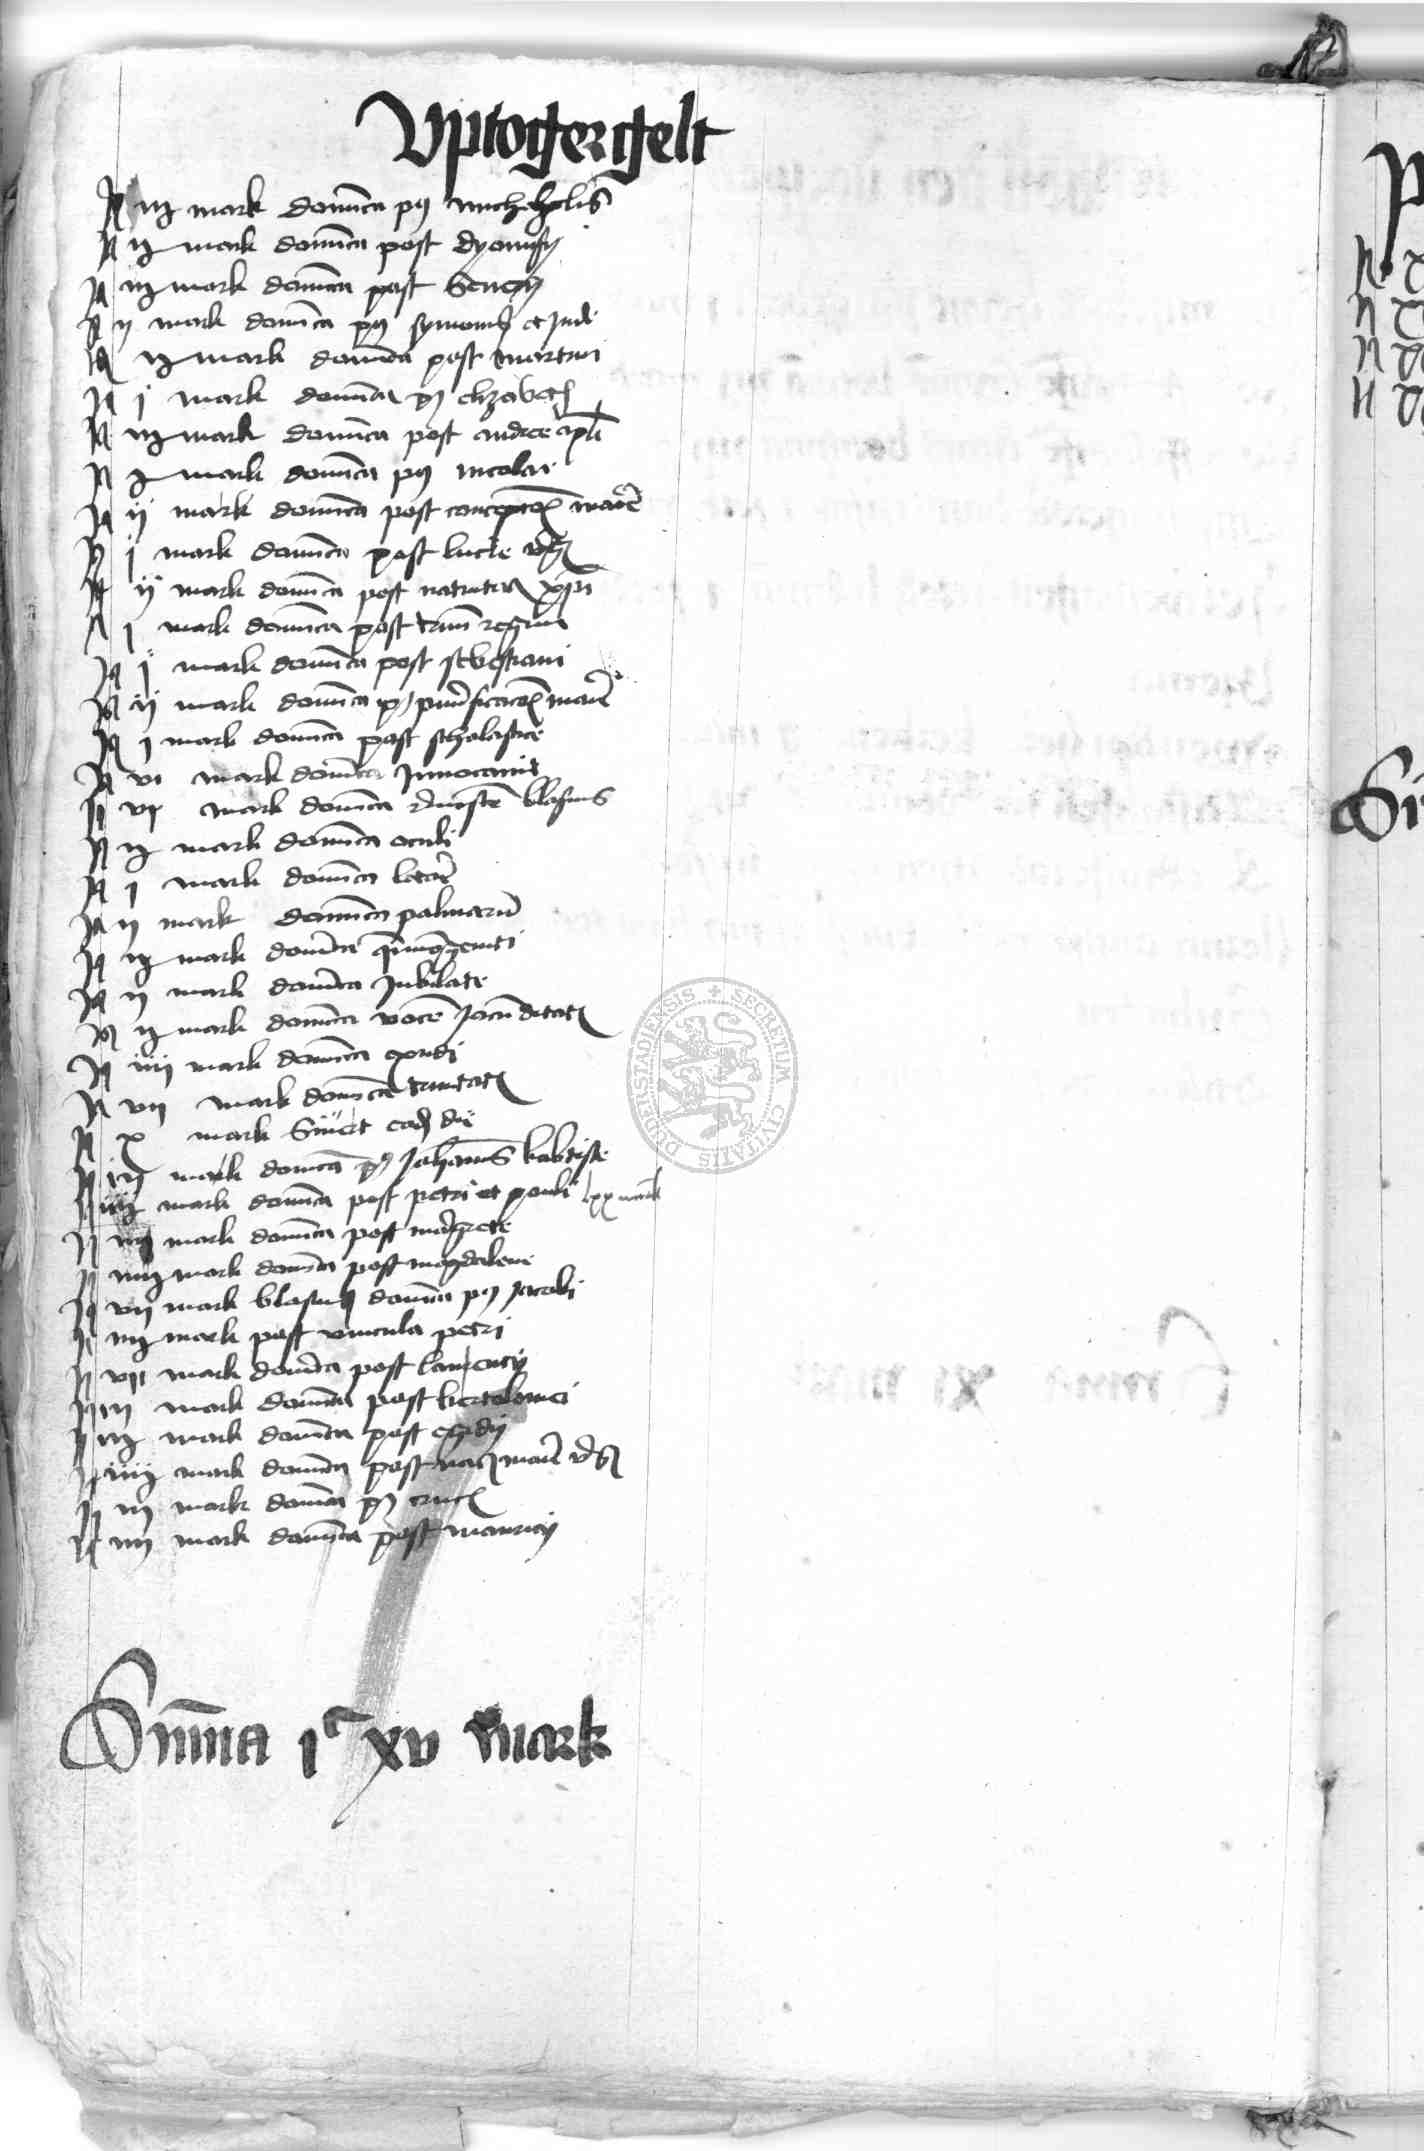 Uptogergelt
It iij mark dominica post michahelis
It ij mark dominica post dyonisy
It iij mark dominica post Seuery
It ij mark dominica post symonis et Jude
It ij mark dominica post martini
It j mark dominica post elizabeth
It iij mark dominica post andree apli
It j mark dominica post nicolai
It ij mark dominica post conceptionis marie
It j mark dominica post lucie virginis
It ij mark dominica post natiuitatis xpi
It j mark dominica post trium regum
It j mark dominica post sebastiani
It ij mark dominica post purificationis marie
It j mark dominica post scholastice
It vi mark dominica Inuocauit
It vj mark dominica blasius
It ij mark dominica oculi
It j mark dominica letare
It ij mark dominica palmarum
It ij mark dominica quasimodogeniti
It ij mark dominica Jubilate
It ij mark dominica vocem Jocunditatis
It iiij mark dominica exaudi
It vij mark dominica trinitatis
It x mark Siuert eodem die
It iij mark dominica post Johannis babtiste
It iiij mark dominica post petri et pauli lxx mark
It iiij mark dominica post margrete
It iiij mark dominica post magdalene
It vij mark blasius dominica post Jacobi
It iij mark post vincula petri
It vij mark dominica post laurency
It iij mark dominica post bertolomei
It iij mark dominica post egidy
It iiij mark dominica post nat marie virginis
It iij mark dominica post crucis
It iiij mark dominica post mauricy
Summa jc xv mark
SECRETUM CIVITATIS DUDERSTADIENSIS